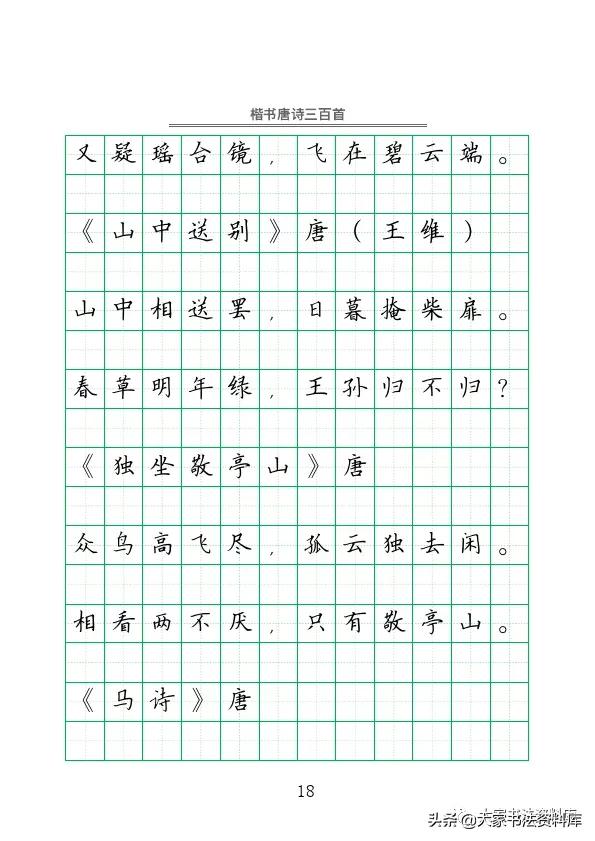 楷书唐诗三百首
又疑瑶台镜，飞在碧云端。
《山中送别》唐（王维）
山中相送罢，日暮掩柴扉。
春草明年绿，王孙归不归？
《独坐敬亭山》唐
众鸟高飞尽，孤云独去闲。
相看两不厌，只有敬亭山。
《马诗》唐
18
大家书法资料库
头条@大家书法资料库